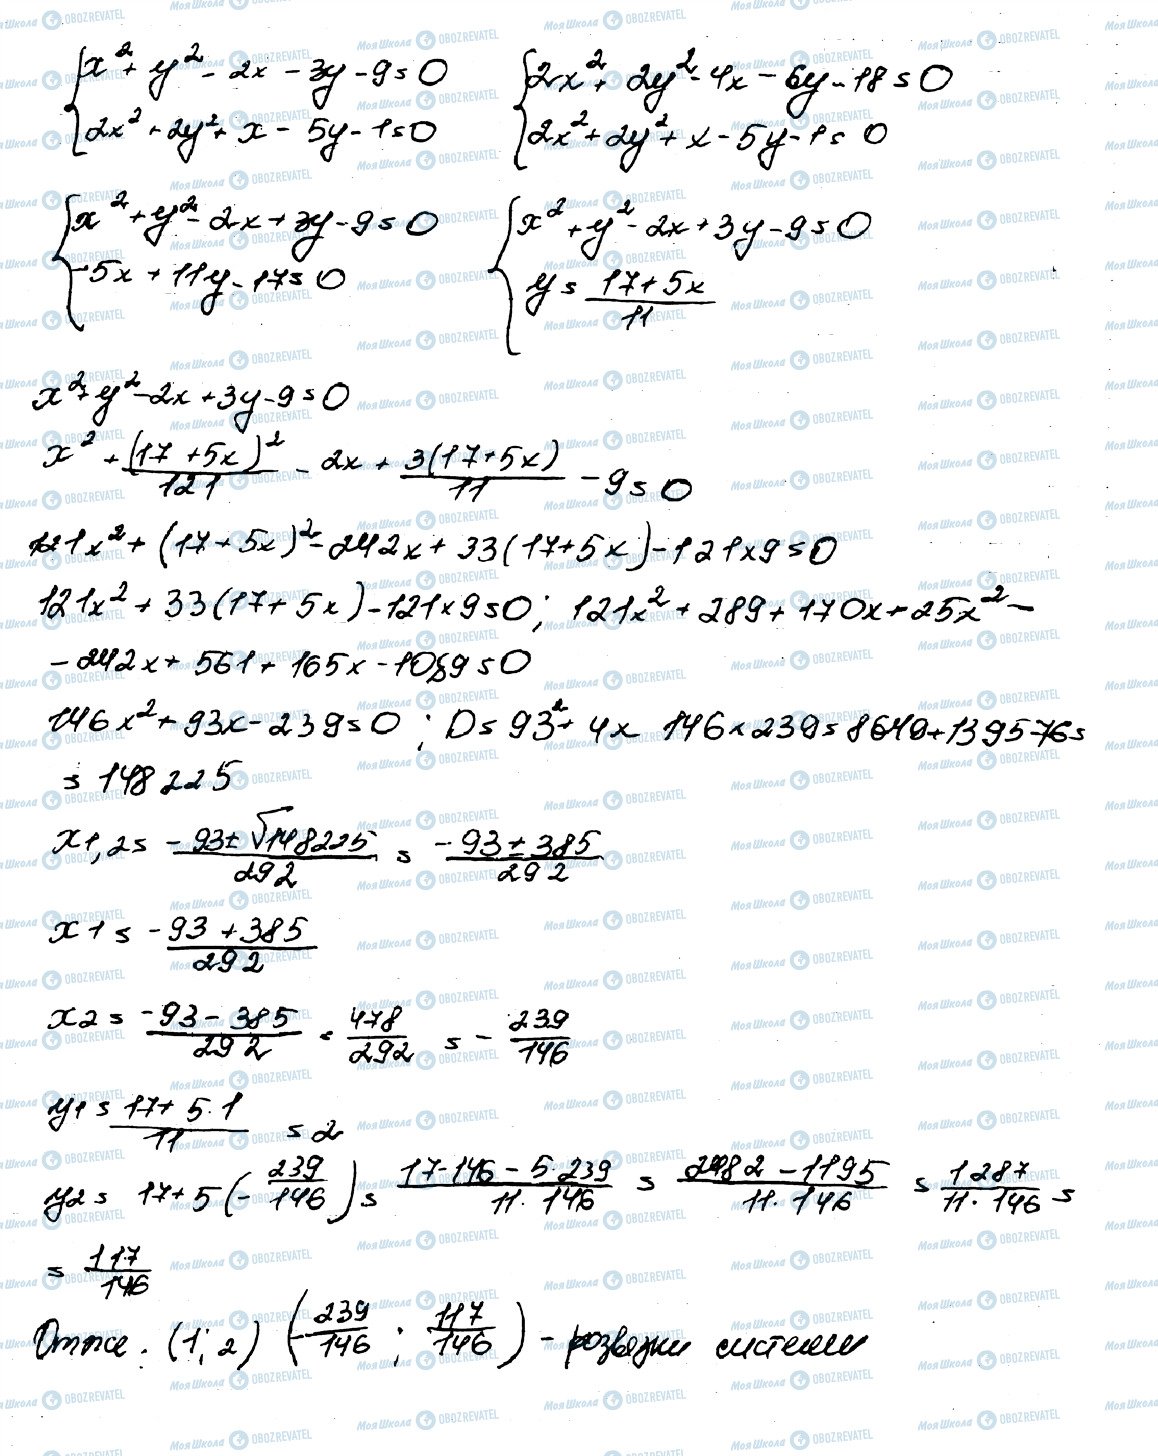 { x² + y² - 2x - 3y - 9 = 0    { 2x² + 2y² - 4x - 6y - 18 = 0
{ 2x² + 2y² + x - 5y - 1 = 0    { 2x² + 2y² + x - 5y - 1 = 0
{ x² + y² - 2x + 3y - 9 = 0    { x² + y² - 2x + 3y - 9 = 0
{ -5x + 11y - 17 = 0    { y = (17 + 5x)/11
x² + y² - 2x + 3y - 9 = 0
x² + (17 + 5x)²/121 - 2x + 3(17 + 5x)/11 - 9 = 0
121x² + (17 + 5x)² - 242x + 33(17 + 5x) - 121 × 9 = 0
121x² + 33(17 + 5x) - 121 × 9 = 0; 121x² + 289 + 170x + 25x² -
- 242x + 561 + 165x - 1089 = 0
146x² + 93x - 239 = 0; D = 93² + 4 × 146 × 239 = 8649 + 139576 =
= 148225
x1,2 = (-93 ± √148225)/292 = (-93 ± 385)/292
x1 = (-93 + 385)/292
x2 = (-93 - 385)/292 = 478/292 = -239/146
y1 = (17 + 5·1)/11 = 2
y2 = 17 + 5(-239/146) = (17·146 - 5·239)/(11·146) = (2482 - 1195)/(11·146) = 1287/(11·146) =
= 117/146
Отже: (1; 2) (-239/146; 117/146) - розвязки системи